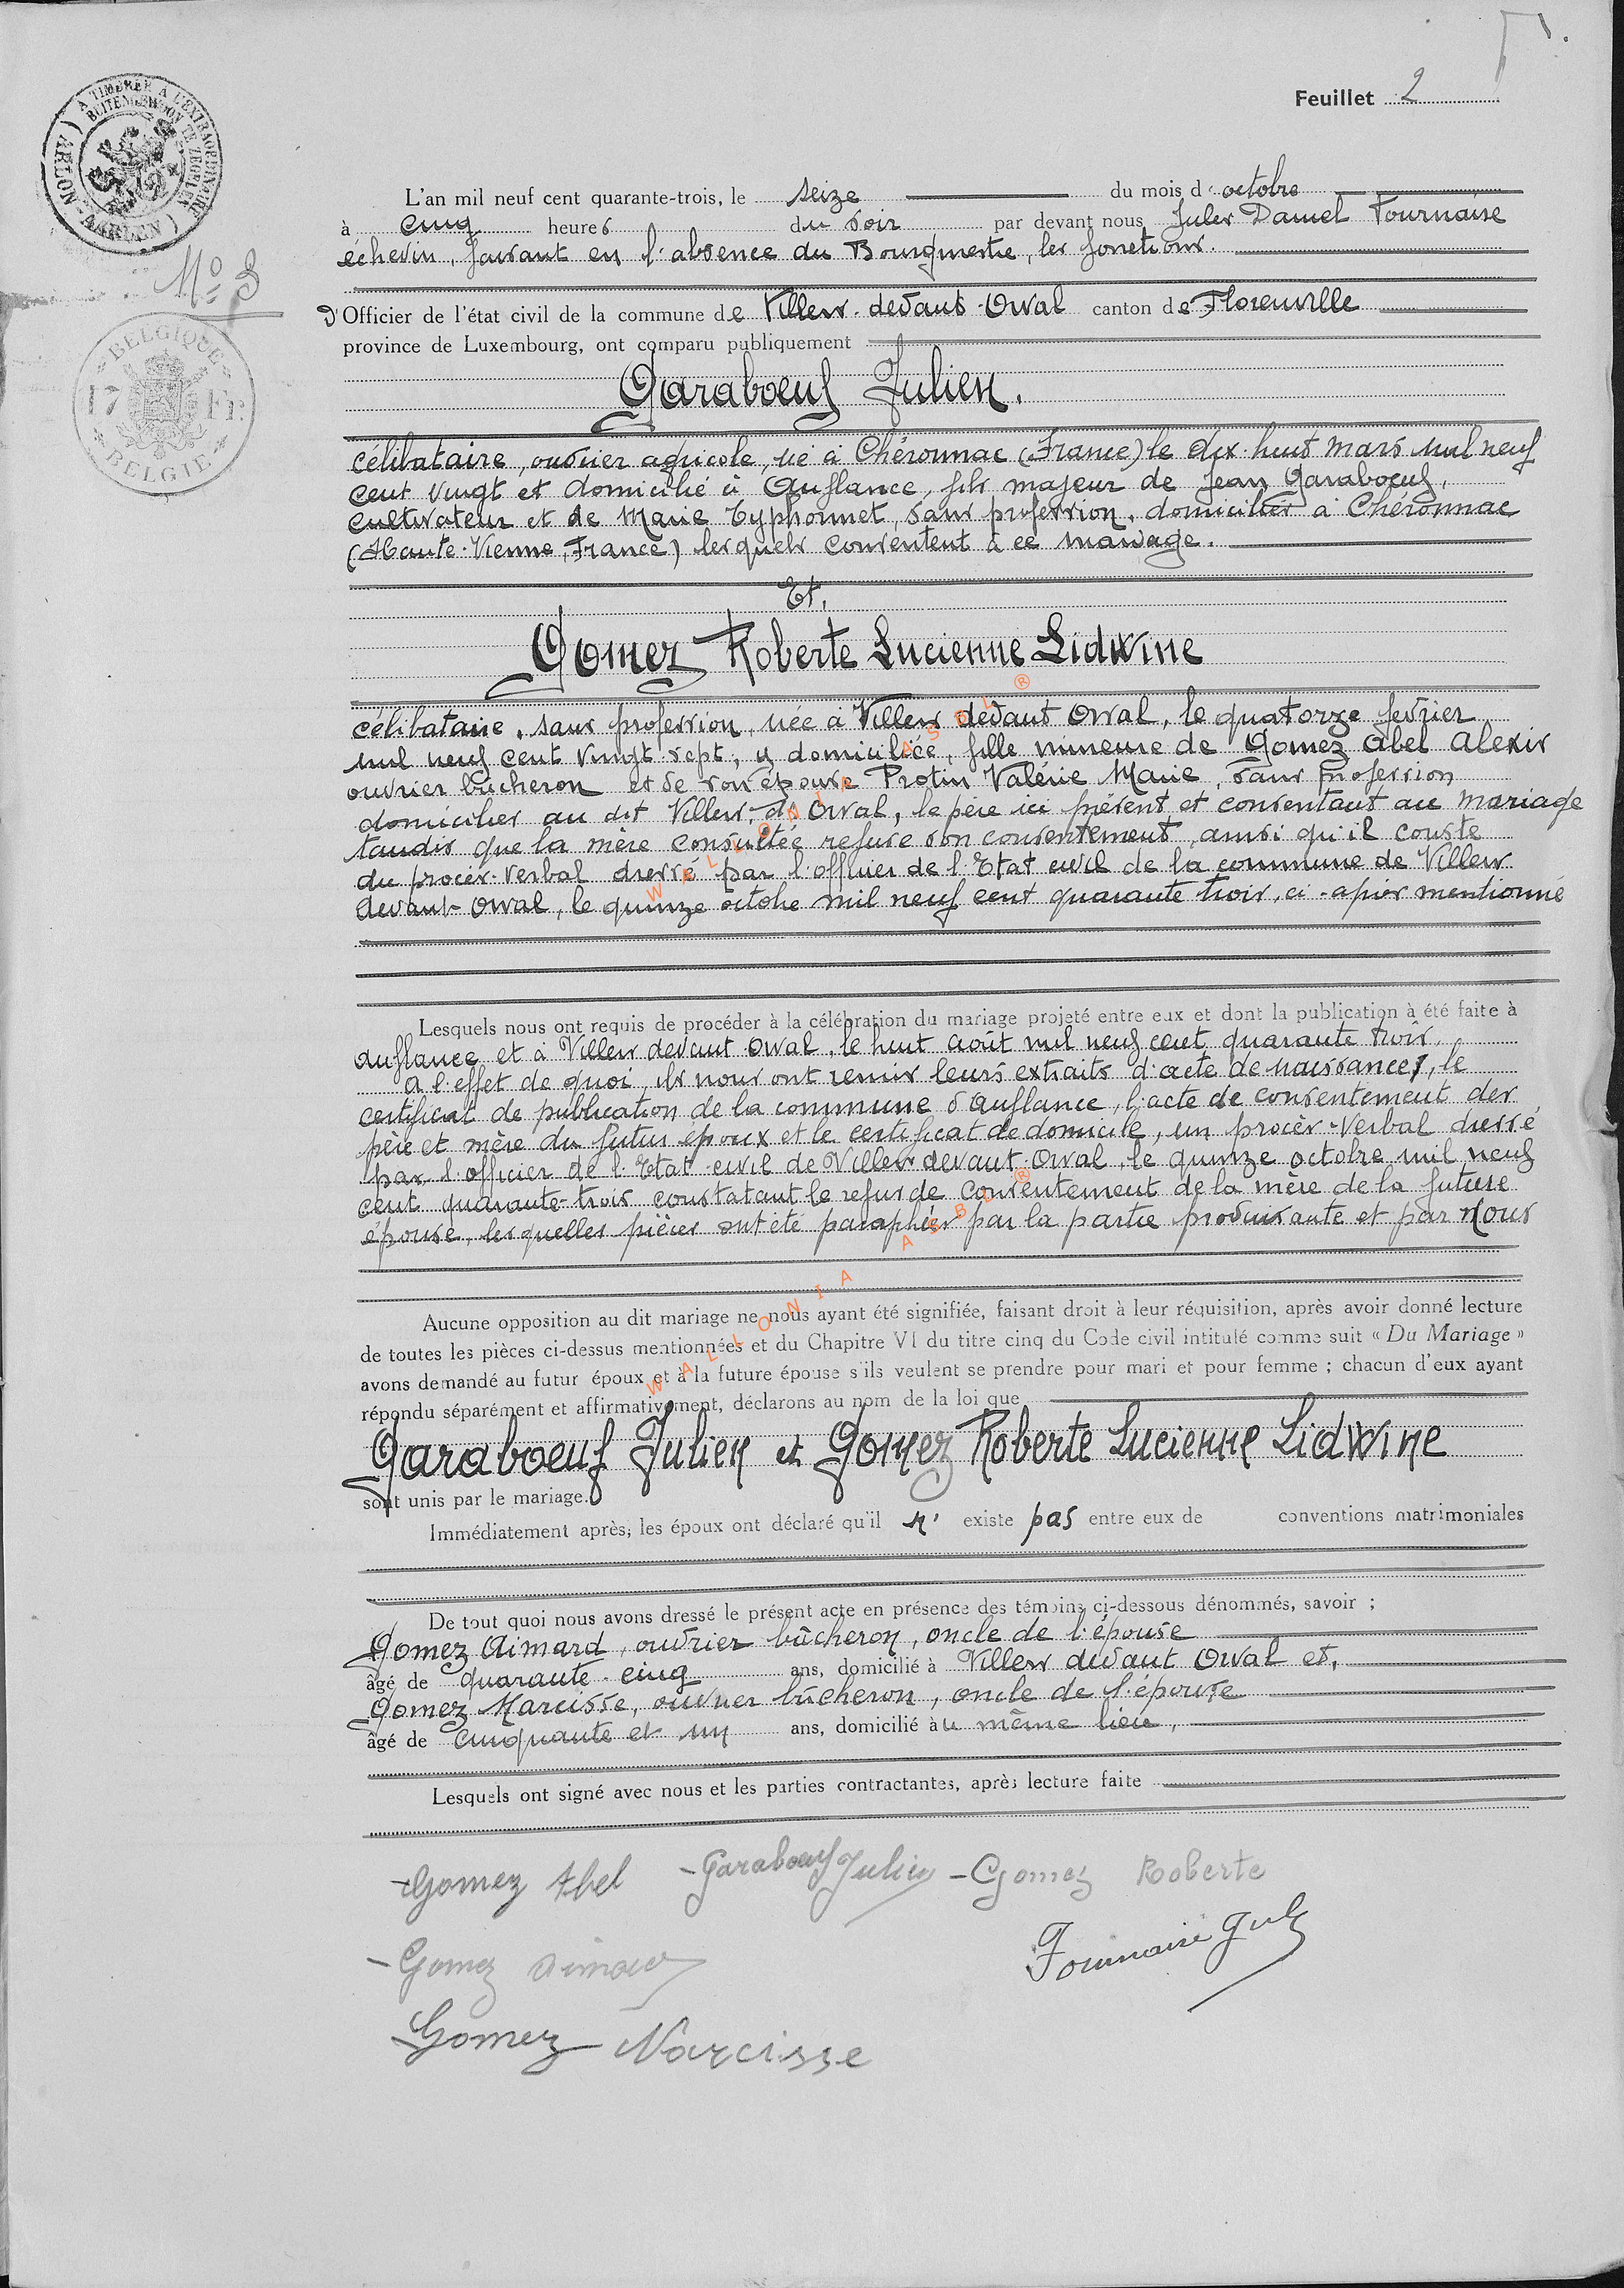 Feuillet 2
A TIMBRER A L'EXTRAORDINAIRE
BUITENGEWOON TE ZEGELEN
ARLON
AARLEN
L'an mil neuf cent quarante-trois, le seize du mois d'octobre
à cinq heures du soir par devant nous Jules Daniel Fournaise
échevin, faisant en l'absence du Bourgmestre, les fonctions.
No 3
d'Officier de l'état civil de la commune de Villers-devant-Orval canton de Florenville
province de Luxembourg, ont comparu publiquement
BELGIQUE
17 Fr.
BELGIE
Garaboeuf Julien.
célibataire, ouvrier agricole, né à Chéronnac (France) le dix-huit mars mil neuf
cent vingt et domicilié à Auflance, fils majeur de Jean Garaboeuf,
cultivateur et de Marie Typhonnet, sans profession, domiciliés à Chéronnac
(Haute-Vienne, France) lesquels consentent à ce mariage.
Et,
Gomez Roberte Lucienne Lidwine
célibataire, sans profession, née à Villers devant Orval, le quatorze fevrier
mil neuf cent vingt-sept, y domiciliée, fille mineure de Gomez Abel Alexis
ouvrier bûcheron et de son épouse Protin Valérie Marie, sans profession
domiciliés au dit Villers-dt Orval, le père ici présent et consentant au mariage
tandis que la mère consultée refuse son consentement, ainsi qu'il conste
du procès-verbal dressé par l'officier de l'Etat civil de la commune de Villers
devant-Orval, le quinze octobre mil neuf cent quarante trois, ci-après mentionné
WALLONIA ASBL ®
Lesquels nous ont requis de procéder à la célébration du mariage projeté entre eux et dont la publication à été faite à
Auflance et à Villers devant Orval, le huit août mil neuf cent quarante trois.
A l'effet de quoi, ils nous ont remis leurs extraits d'acte de naissance, le
certificat de publication de la commune d'Auflance, l'acte de consentement des
père et mère du futur époux et le certificat de domicile, un procès-verbal dressé
par l'officier de l'Etat-civil de Villers devant Orval, le quinze octobre mil neuf
cent quarante-trois constatant le refus de consentement de la mère de la future
épouse, lesquelles pièces ont été paraphées par la partie produisante et par nous
WALLONIA ASBL ®
Aucune opposition au dit mariage ne nous ayant été signifiée, faisant droit à leur réquisition, après avoir donné lecture
de toutes les pièces ci-dessus mentionnées et du Chapitre VI du titre cinq du Code civil intitulé comme suit « Du Mariage »
avons demandé au futur époux et à la future épouse s'ils veulent se prendre pour mari et pour femme ; chacun d'eux ayant
répondu séparément et affirmativement, déclarons au nom de la loi que
Garaboeuf Julien et Gomez Roberte Lucienne Lidwine
sont unis par le mariage.
Immédiatement après, les époux ont déclaré qu'il n' existe pas entre eux de conventions matrimoniales
De tout quoi nous avons dressé le présent acte en présence des témoins ci-dessous dénommés, savoir ;
Gomez Aimard, ouvrier bûcheron, oncle de l'épouse
âgé de quarante-cinq ans, domicilié à Villers devant Orval et,
Gomez Narcisse, ouvrier bûcheron, oncle de l'épouse
âgé de cinquante et un ans, domicilié au même lieu,
Lesquels ont signé avec nous et les parties contractantes, après lecture faite
-Gomez Abel -Garaboeuf Julien -Gomez Roberte
-Gomez Aimard Fournaise Jules
-Gomez Narcisse